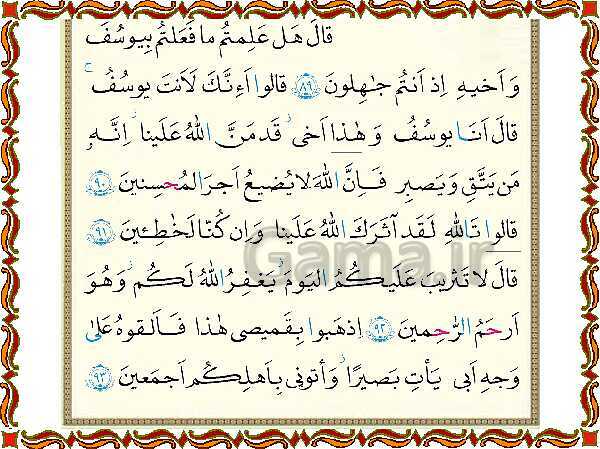 قالَ هَل عَلِمتُم ما فَعَلتُم بِيوسُفَ
وَ اَخيهِ اِذ اَنتُم جٰهِلونَ ﴿٨٩﴾ قالوا اَءِنَّكَ لَاَنتَ يوسُفُ ۖ
قالَ اَنَا يوسُفُ وَ هٰذا اَخى ۖ قَد مَنَّ اللّٰهُ عَلَينا ۖ اِنَّهُ
مَن يَتَّقِ وَ يَصبِر فَاِنَّ اللّٰهَ لا يُضيعُ اَجرَ المُحسِنينَ ﴿٩٠﴾
قالوا تَاللّٰهِ لَقَد آثَرَكَ اللّٰهُ عَلَينا وَ اِن كُنّا لَخٰطِـئينَ ﴿٩١﴾
قالَ لا تَثريبَ عَلَيكُمُ اليَومَ ۖ يَغفِرُ اللّٰهُ لَكُم ۖ وَ هُوَ
اَرحَمُ الرّٰحِمينَ ﴿٩٢﴾ اِذهَبوا بِقَميصى هٰذا فَاَلقوهُ عَلىٰ
وَجهِ اَبى يَأتِ بَصيرًا ۖ وَ أتونى بِاَهلِكُم اَجمَعينَ ﴿٩٣﴾
Gama.ir